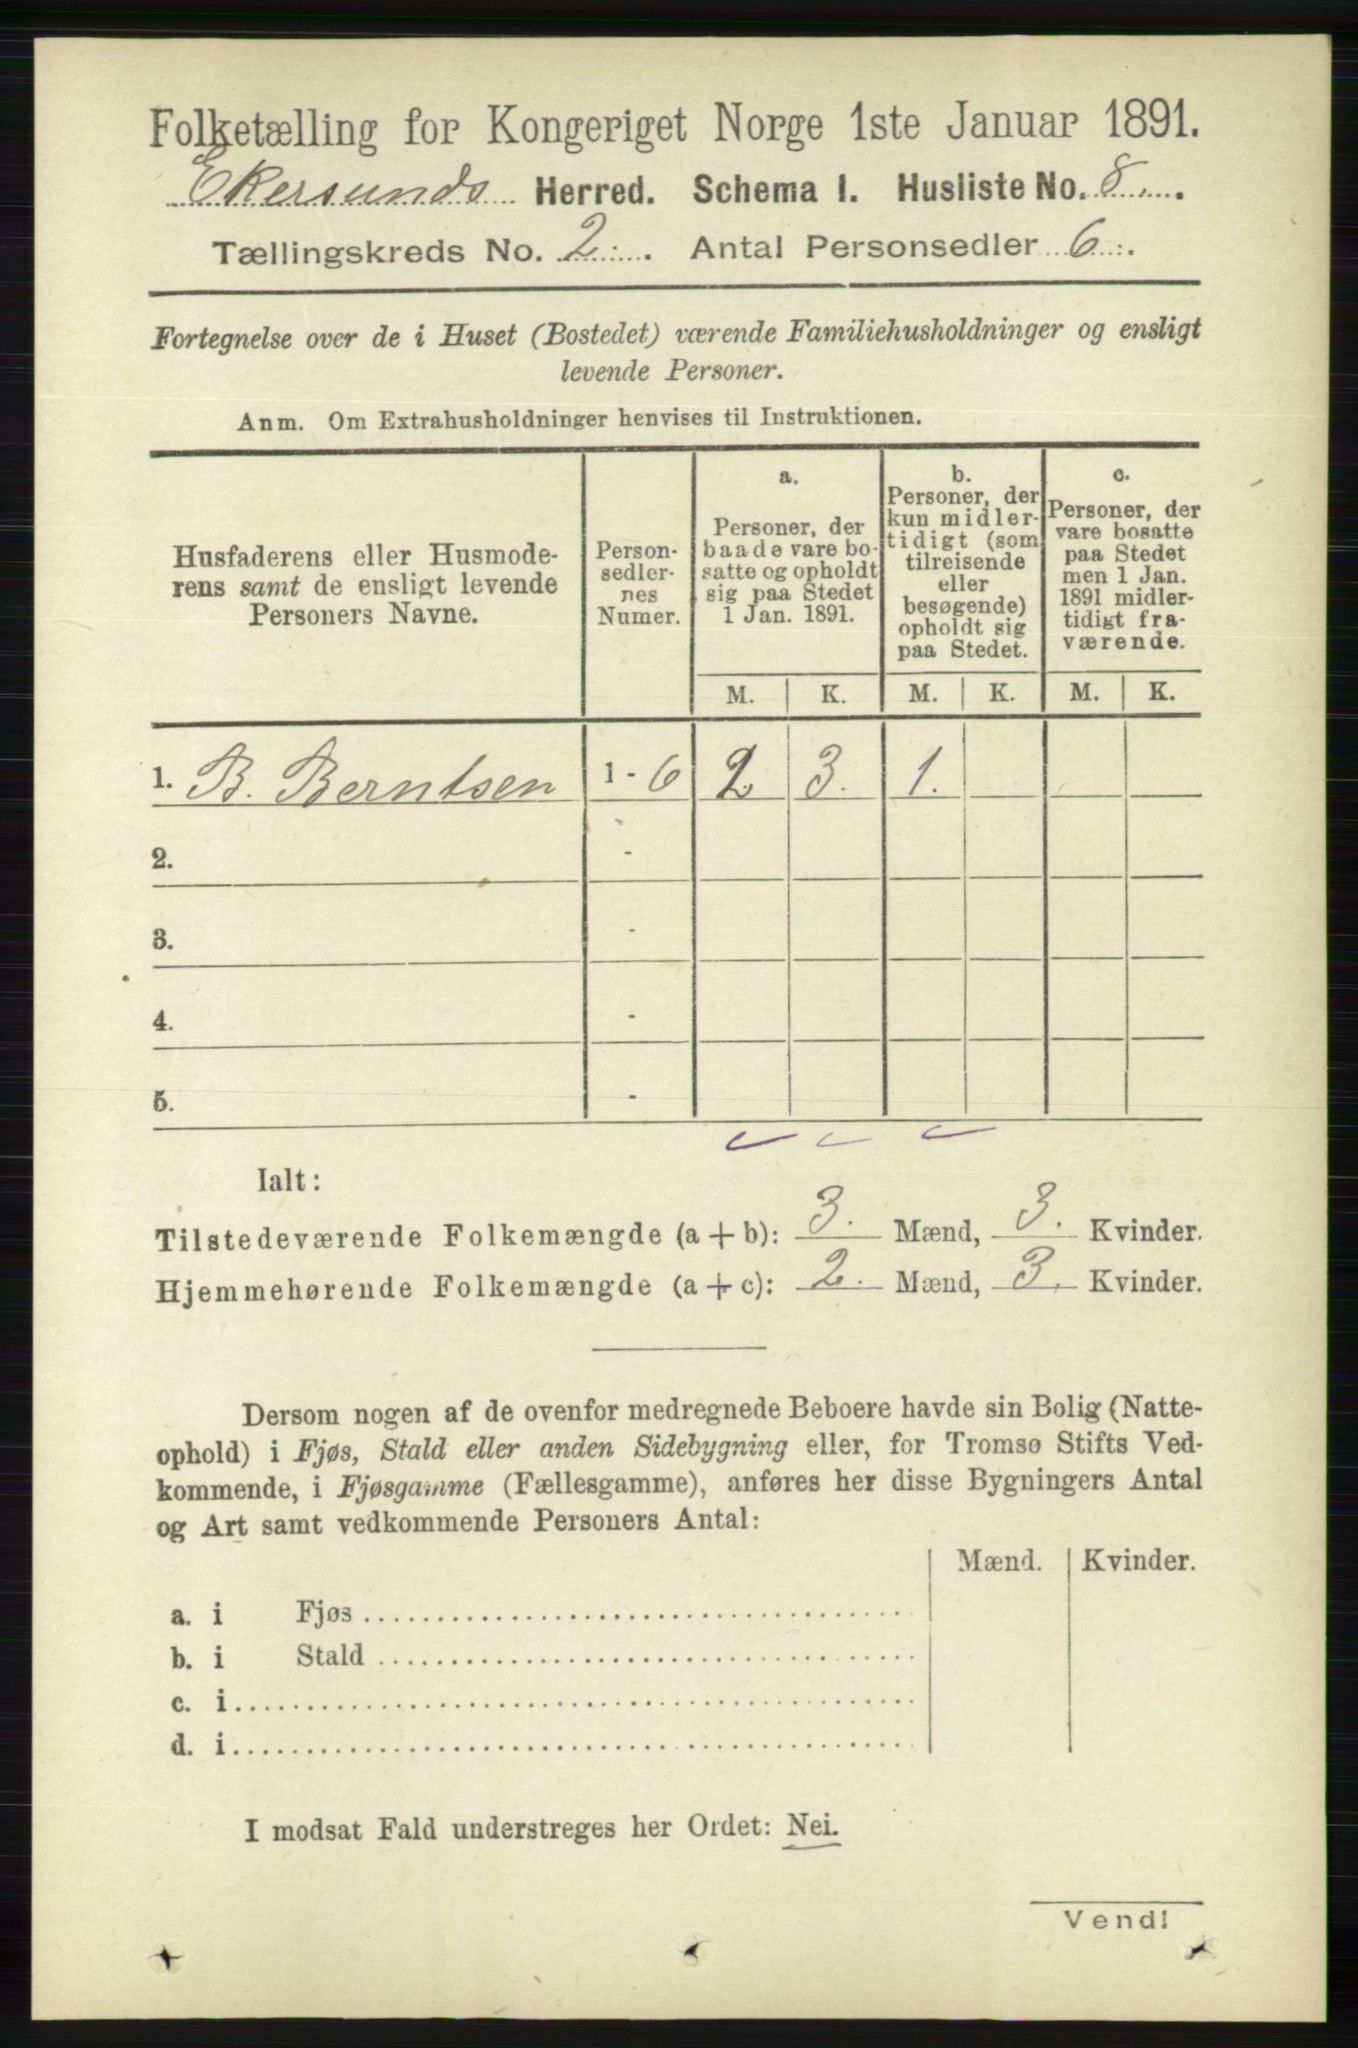 Folketælling for Kongeriget Norge 1ste Januar 1891.
Ekersunds Herred. Schema I. Husliste No. 8
Tællingskreds No. 2. Antal Personsedler 6.
Fortegnelse over de i Huset (Bostedet) værende Familiehusholdninger og ensligt
levende Personer.
Anm. Om Extrahusholdninger henvises til Instruktionen.
Husfaderens eller Husmode-
rens samt de ensligt levende
Personers Navne.
Person-
sedler-
nes
Numer.
a.
Personer, der
baade vare bo-
satte og opholdt
sig paa Stedet
1 Jan. 1891.
b.
Personer, der
kun midler-
tidigt (som
tilreisende
eller
besøgende)
opholdt sig
paa Stedet.
c.
Personer, der
vare bosatte
paa Stedet
men 1 Jan.
1891 midler-
tidigt fra-
værende.
M. K. M. K. M. K.
1. B. Berntsen 1 - 6 2 3. 1.
2. -
3. -
4. -
5. -
Ialt:
Tilstedeværende Folkemængde (a + b): 3. Mænd, 3. Kvinder.
Hjemmehørende Folkemængde (a + c): 2. Mænd, 3. Kvinder.
Dersom nogen af de ovenfor medregnede Beboere havde sin Bolig (Natte-
ophold) i Fjøs, Stald eller anden Sidebygning eller, for Tromsø Stifts Ved-
kommende, i Fjøsgamme (Fællesgamme), anføres her disse Bygningers Antal
og Art samt vedkommende Personers Antal:
Mænd. Kvinder.
a. i Fjøs
b. i Stald
c. i
d. i
I modsat Fald understreges her Ordet: Nei.
Vend!